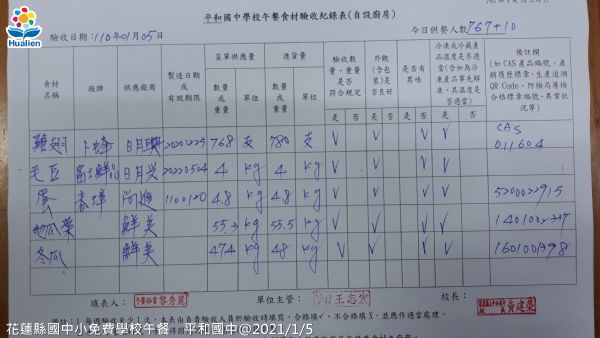 Hualien
平和國中學校午餐食材驗收紀錄表(自設廚房)
驗收日期:110年01月05日
今日供餐人數767+10
食材名稱 廠牌 供應廠商 製造日期或有效期限 菜單供應量 進貨量 驗收數量、重量是否符合規定 外觀(含包裝)是否良好 是否有異味 冷凍或冷藏產品溫度是否適當(含如為冷凍產品事先解凍,其溫度是否適當) 備註欄(如 CAS 產品編號、產銷履歷條碼、生產追溯 QR Code、防檢局屠檢合格標章編號、異常狀況等)
數量或重量 單位 數量或重量 單位 是 否 是 否 是 否 是 否
雞翅 卜蜂 日月興 20201229 768 支 780 支 V V V V CAS 011604
毛豆 日月興 20220504 4 kg 4 kg V V V V
蛋 1100120 4.8 kg 4.8 kg V V V V 520022915
地瓜葉 鮮美 55.3 kg 55.5 kg V V V
冬瓜 鮮美 47.4 kg 48 kg V V V V
填表人: 午餐秘書黎秀鳳 單位主管: 王志宏 校長: 黃建榮
花蓮縣國中小免費學校午餐 平和國中@2021/1/5